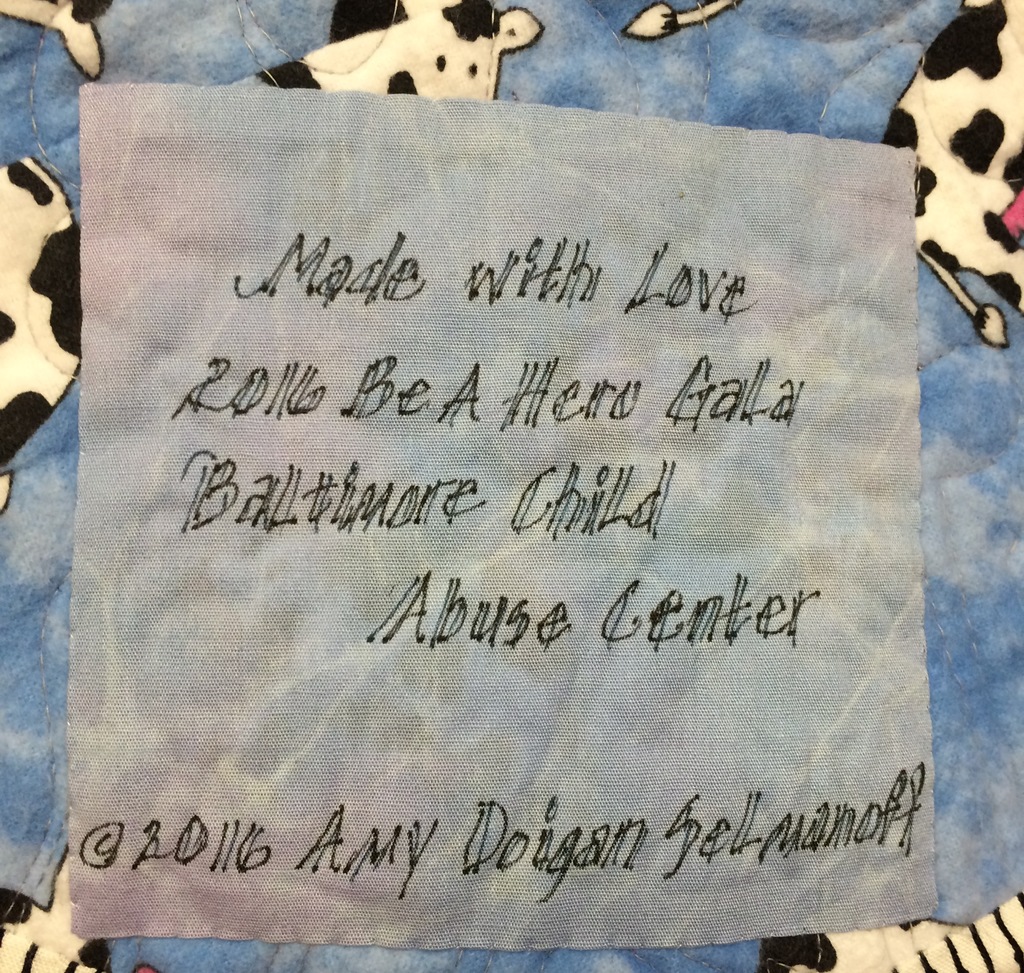 Made with Love
2016 Be A Hero Gala
Baltimore Child
Abuse Center
©2016 Amy Doigan Selmanoff